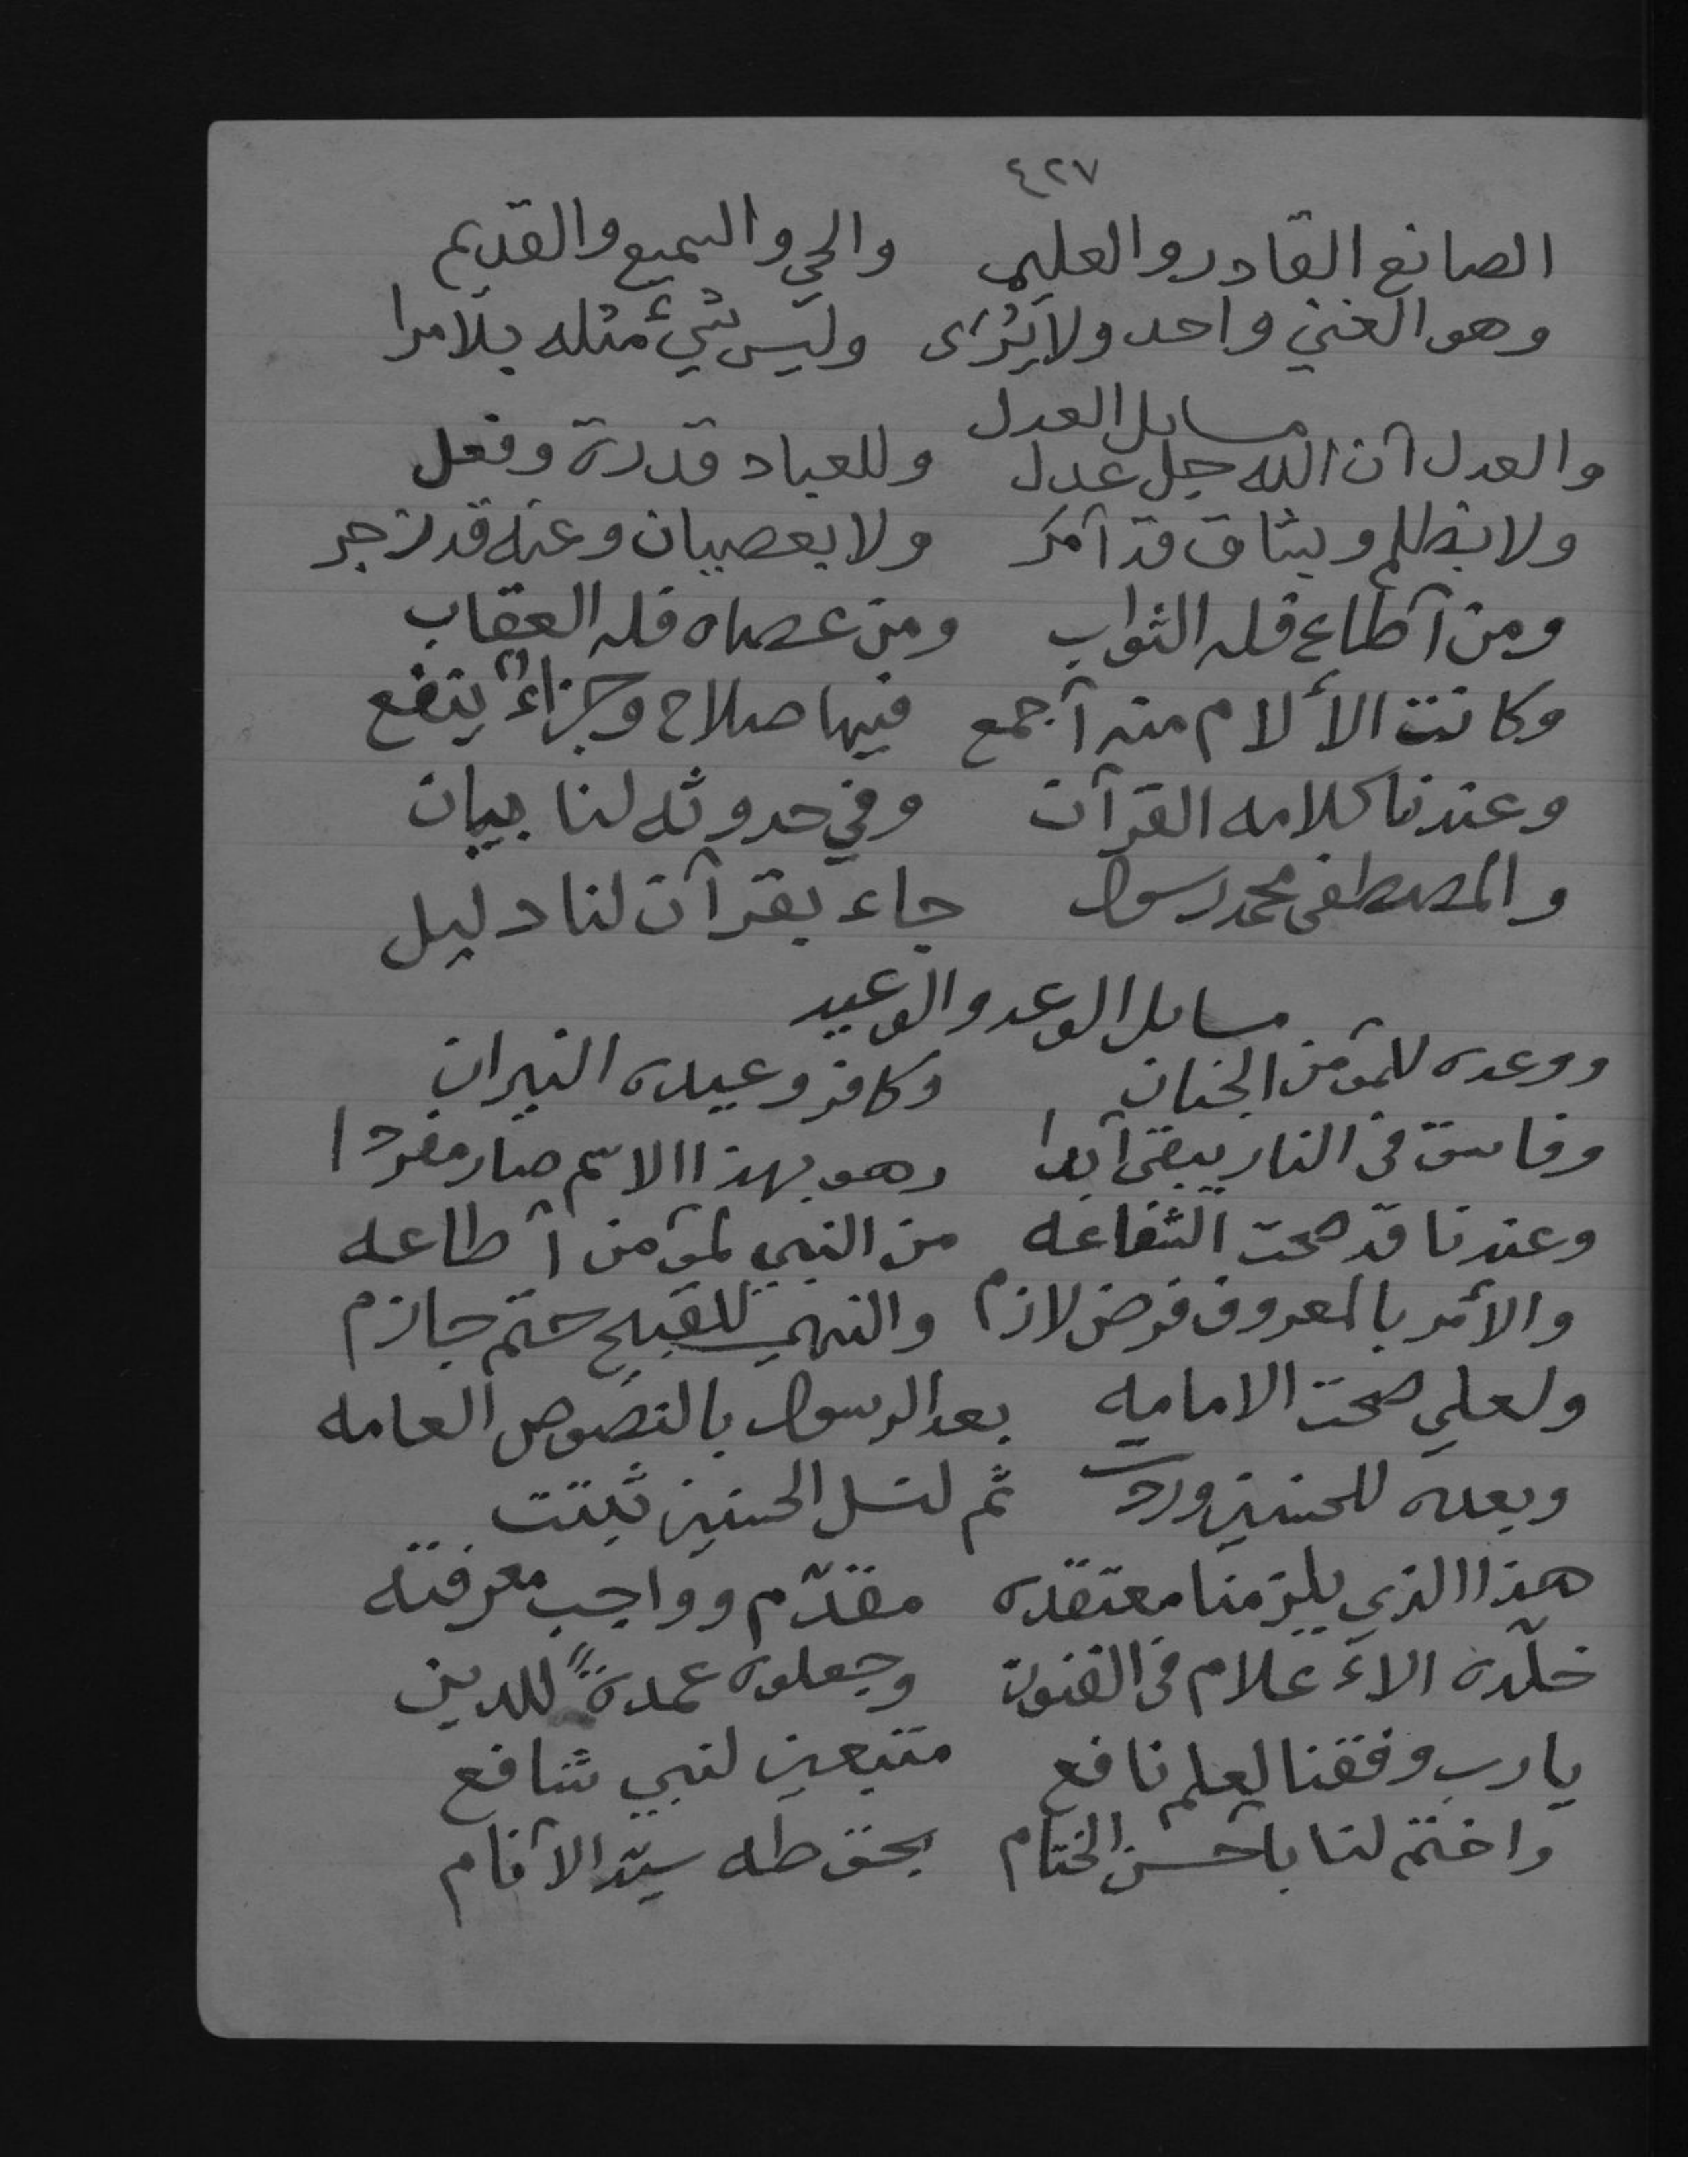 ٤٢٧
الصانع القادر والعليم والحي والسميع والقديم
وهو الغني واحد ولا يُرَى وليس شيءٌ مثله بلا مرا
مسايل العدل
والعدل أن الله جل عدل وللعباد قدرة وفعل
ولا بظلم وشاق قد أمر ولا بعصيان وعنه قد زجر
ومن أطاع فله الثواب ومن عصاه فله العقاب
وكانت الألام منه أجمع فيها صلاح وجزاءٌ ينفع
وعندنا كلامه القرآن وفي حدوثه لنا بيان
والمصطفى محمد رسول جاء بقرآن لنا دليل
مسايل الوعد والوعيد
ووعده للمؤمن الجنان وكافر وعيده النيران
وفاسق في النار يبقى أبدا وهو بهذا الاسم صار مفردا
وعندنا قد صحت الشفاعه من النبي لمؤمن أطاعه
والأمر بالمعروف فرض لازم والنهي للقبيح حتم جازم
ولعلي صحت الامامه بعد الرسول بالنصوص العامه
وبعده للحسنين وردت ثم لنسل الحسنين ثبتت
هذا الذي يلزمنا معتقده مقدّم وواجب معرفته
خلّده الاءعلام في الفنون وجعلوه عمدةً للدين
يا رب وفقنا لعلم نافع متبعين لنبي شافع
واختم لنا بأحسن الختام بحق طه سيّد الأنام